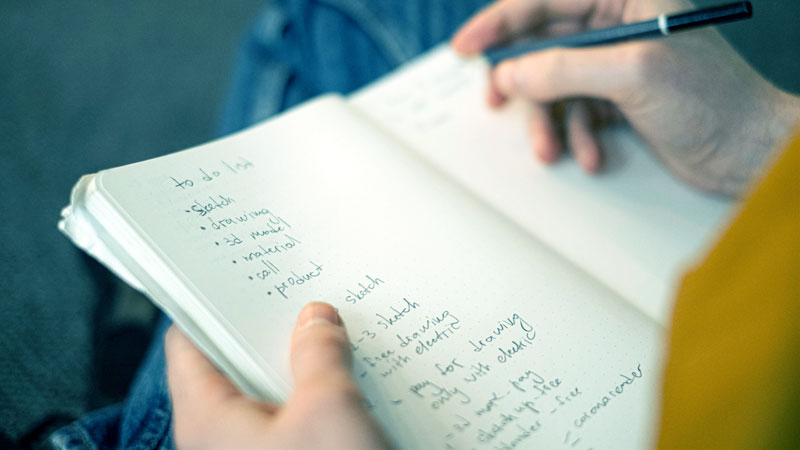 to do list
• sketch
• drawing
• 3d model
• material
• call
• product
sketch
-3 sketch
- free drawing
with electric
- pay for drawing
only with electric
pay
sketch up - free
- free
= corona render